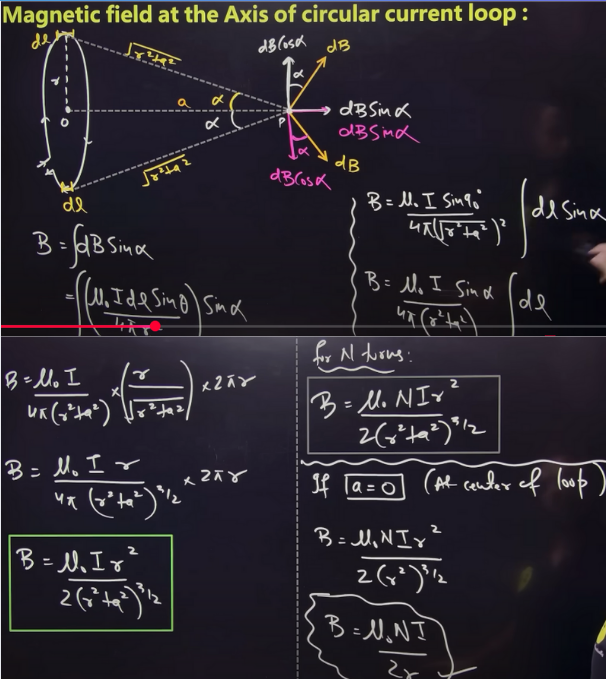 Magnetic field at the Axis of circular current loop :
dl
√r²+a²
dBCosα
dB
α
r
a
α
O
α
P
dBSinα
dBSinα
α
dB
dBCosα
√r²+a²
dl
B = ∫dBSinα
= ∫(μ₀IdlSinθ / 4πr) Sinα
B = μ₀ I Sin90° / 4π(√r²+a²)² ∫dl Sinα
B = μ₀ I Sinα / 4π(r²+a²) ∫dl
B = μ₀ I / 4π(r²+a²) × (r / √r²+a²) × 2πr
B = μ₀ I r / 4π (r²+a²)^3/2 × 2πr
B = μ₀ I r² / 2(r²+a²)^3/2
for N turns:
B = μ₀ NIr² / 2(r²+a²)^3/2
If a=0 (At center of loop)
B = μ₀NIr² / 2(r²)^3/2
B = μ₀NI / 2r